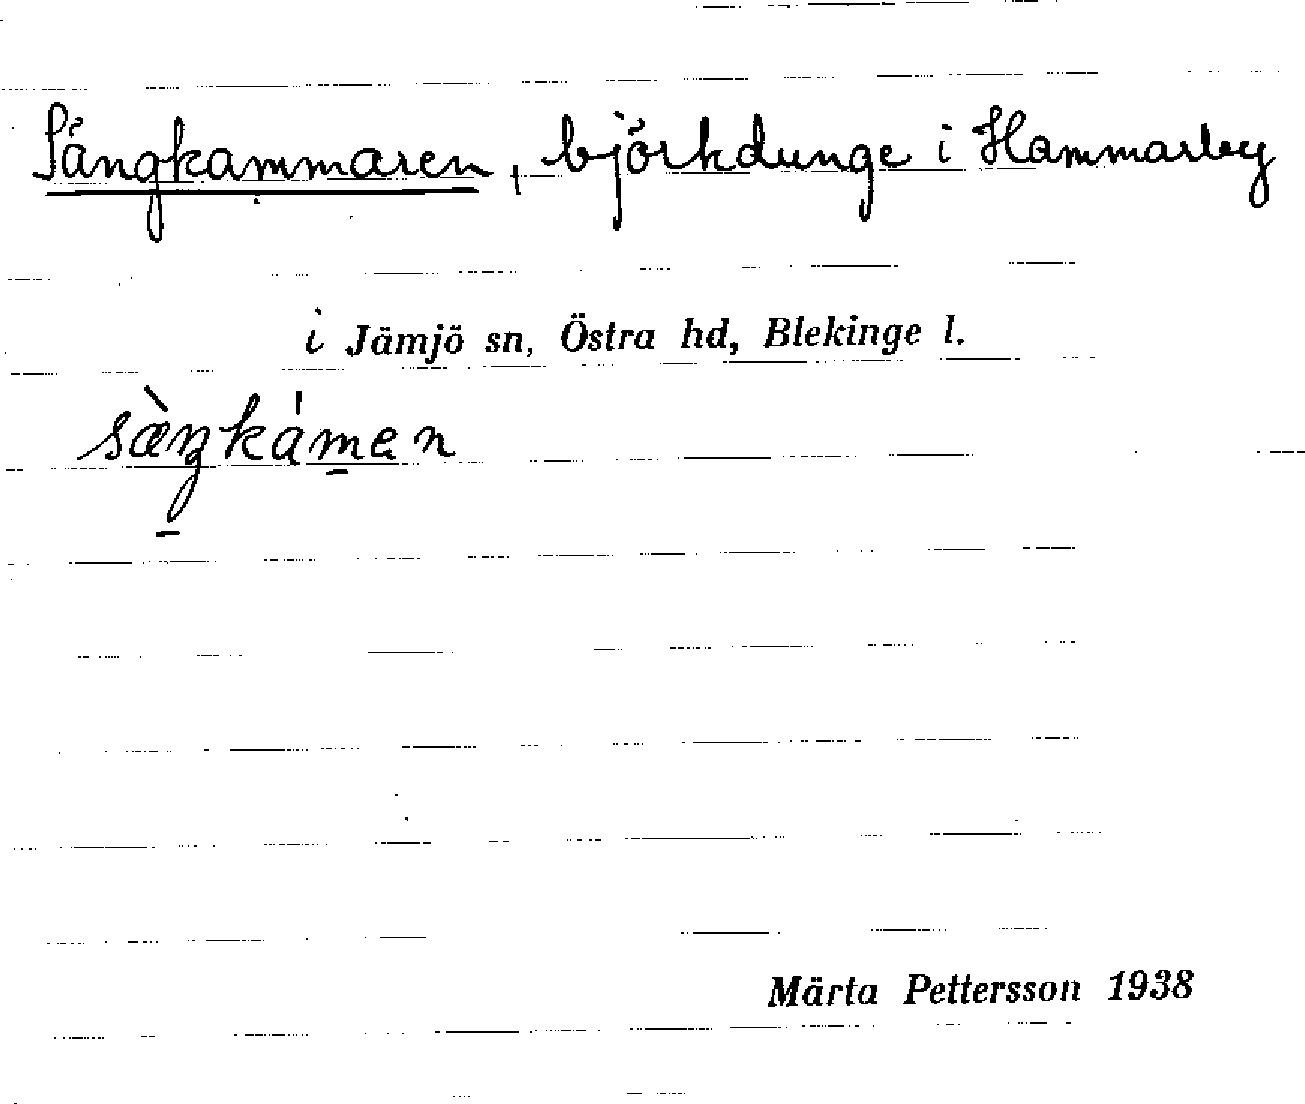 Sängkammaren, björkdunge i Hammarby
i Jämjö sn, Östra hd, Blekinge l.
sæ̀ŋkámen
Märta Pettersson 1938